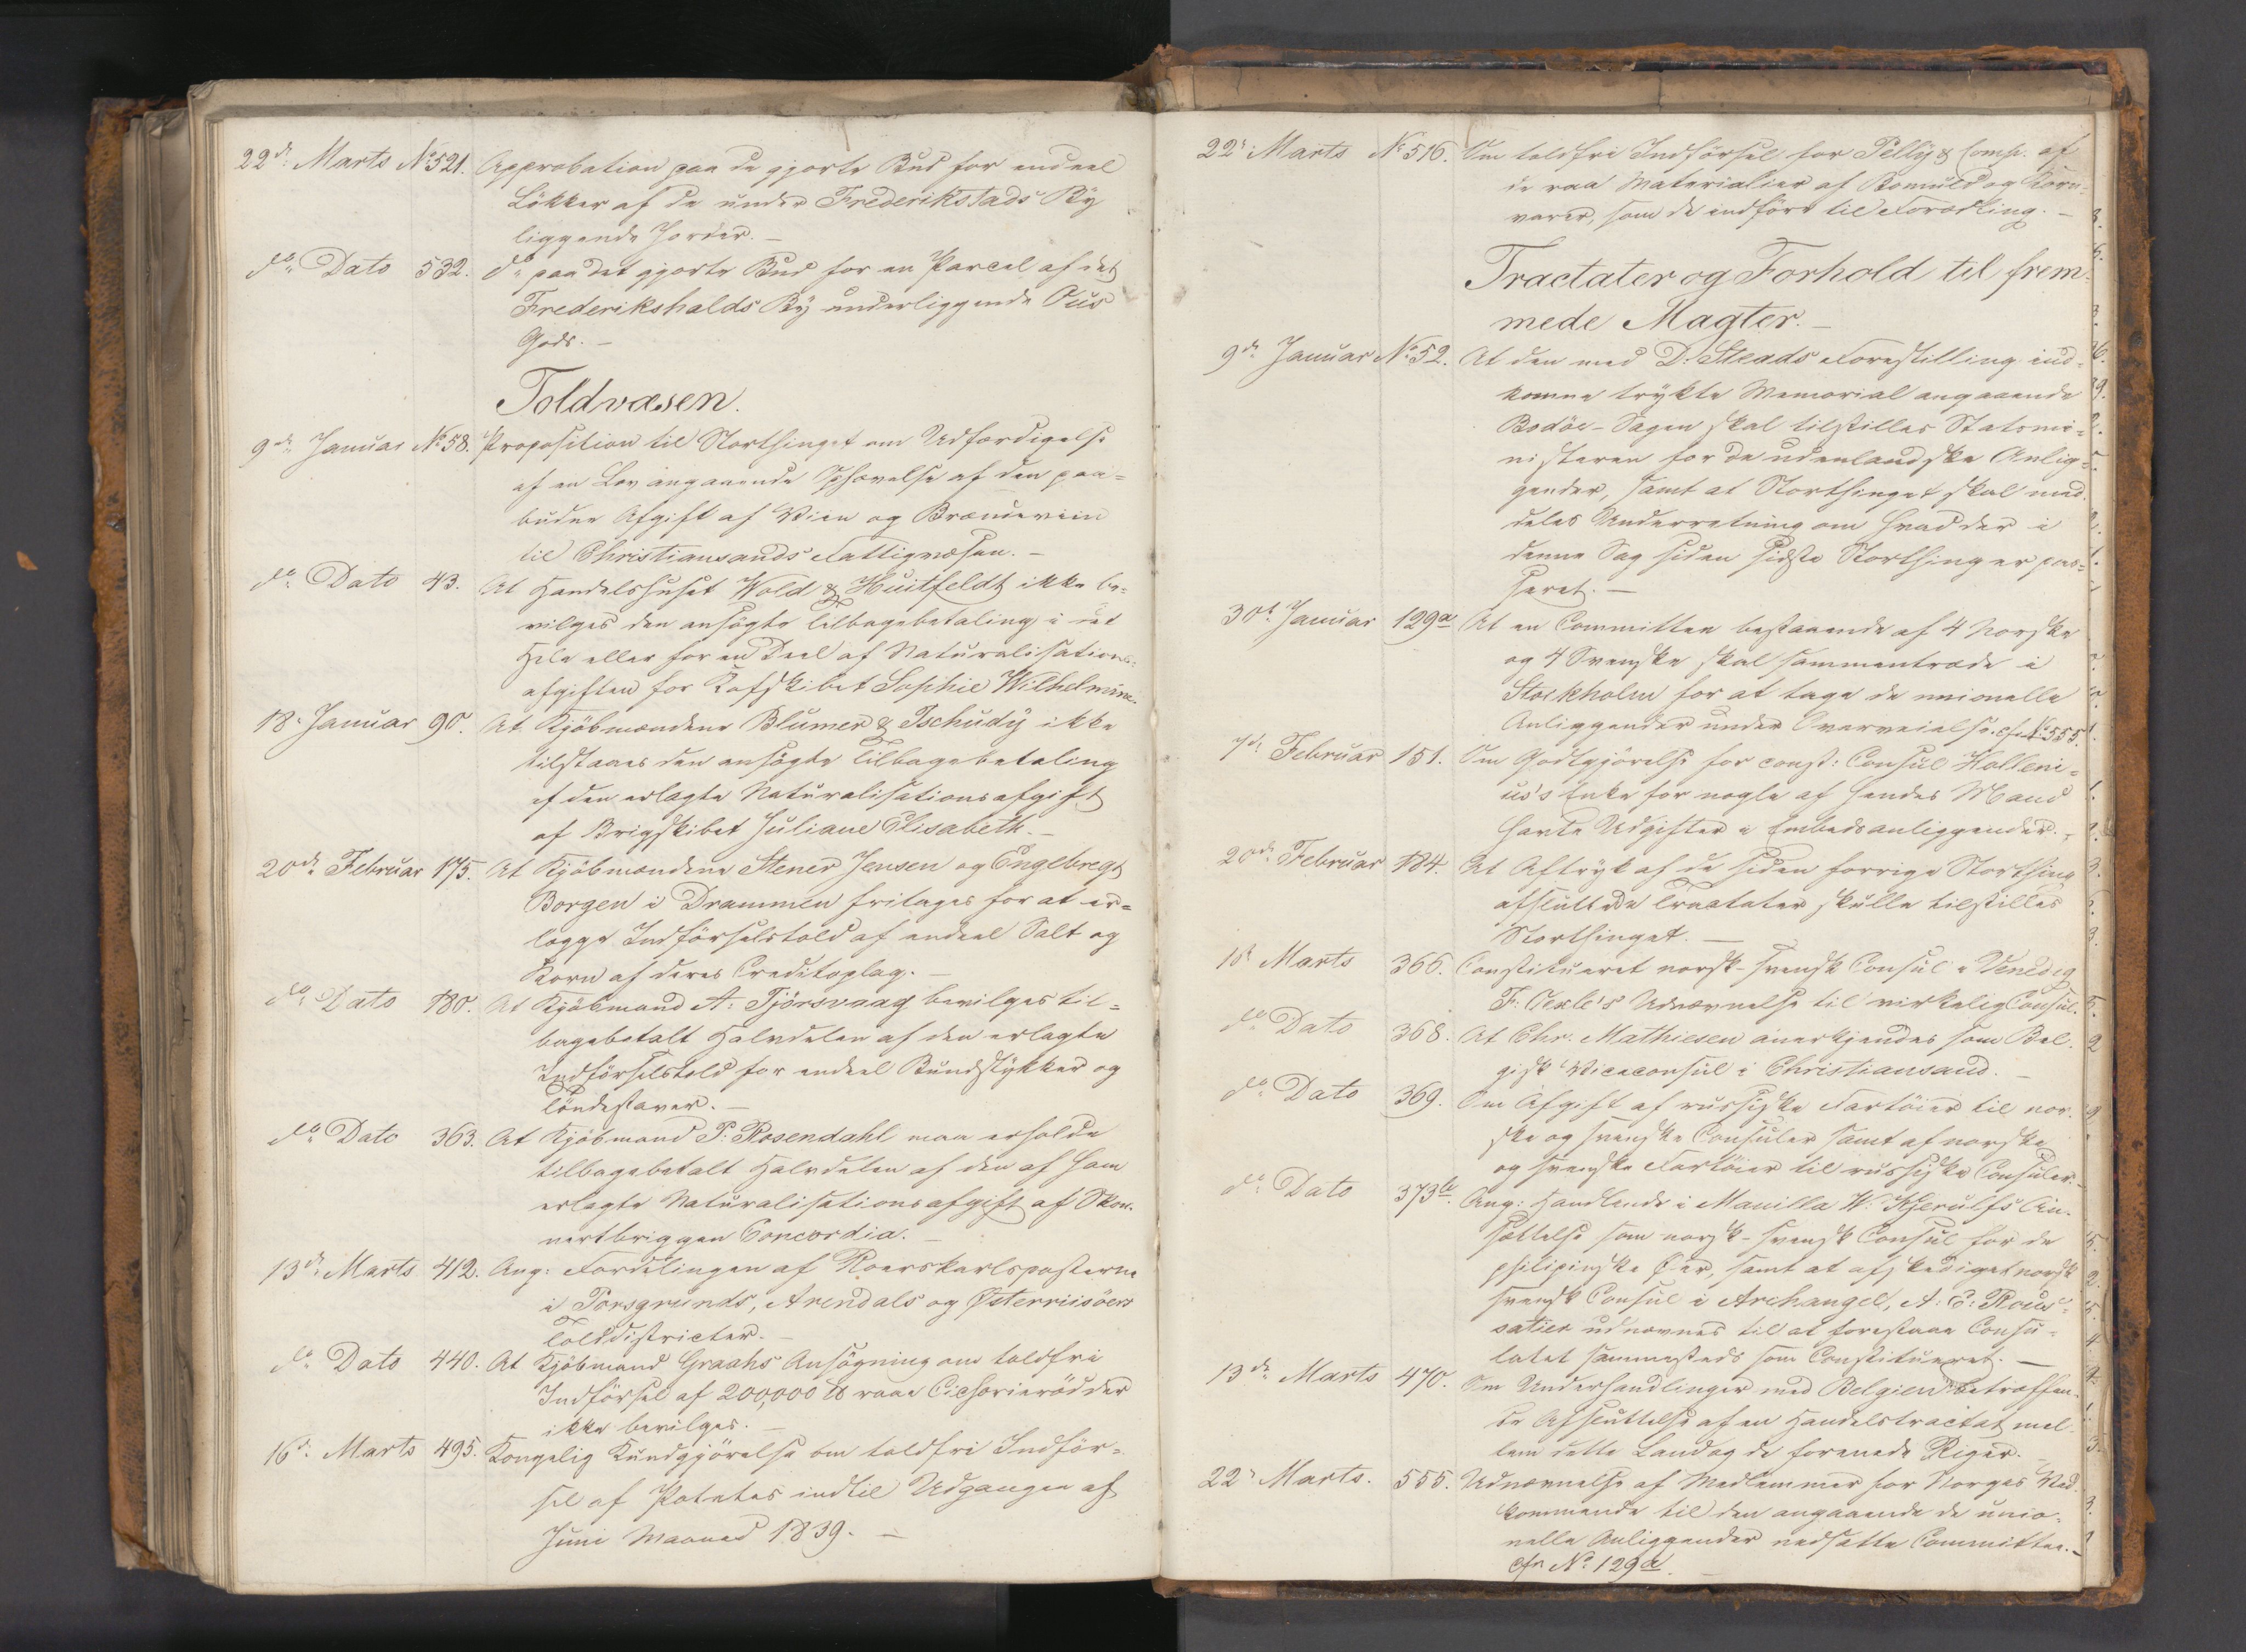 22de Marts No 521. Approbation paa de gjorte Bud for endeel
Løkker af de under Frederikstads By
liggende Jorder. –
do Dato 532. do paa det gjorte Bud for en Parcel af det
Frederikshalds By underliggende Ous
Gods. –
Toldvæsen.
9de Januar No 58. Proposition til Storthinget om Udfærdigelse
af en Lov angaaende Ophævelse af den paa=
budne Afgift af Viin og Brændeviin
til Christiansands Fattigvæsen. –
do Dato 43. At Handelshuset Wold & Huitfeldt ikke be=
vilges den ansøgte Tilbagebetaling i det
Hele eller for en Deel af Naturalisations=
afgiften for Kofskibet Sophie Wilhelmine.
18. Januar 90. At Kjøbmændene Blumer & Tschudy ikke
tilstaaes den ansøgte Tilbagebetaling
af den erlagte Naturalisationsafgift
af Brigskibet Juliane Elisabeth. –
20de Februar 175. At Kjøbmændene Stener Jensen og Engebregt
Borgen i Drammen fritages for at er=
lægge Indførselstold af endeel Salt og
Korn af deres Creditoplag. –
do Dato 180. At Kjøbmand A. Tjörsvaag bevilges til=
bagebetalt Halvdelen af den erlagte
Indførselstold for endeel Bundstykker og
Töndestaver. –
do Dato 363. At Kjøbmand P. Rosendahl maa erholde
tilbagebetalt Halvdelen af den af ham
erlagte Naturalisationsafgift af Skon=
nertbriggen Concordia. –
13de Marts 412. Ang: Fordelingen af Roerskarlsposterne
i Porsgrunds, Arendals og Østerriisöers
Tolddistricter. –
do Dato 440. At Kjøbmand Graahs Ansøgning om toldfri
Indførsel af 200,000 ℔ raae Cichorierødder
ikke bevilges. –
16de Marts 495. Kongelig Kundgjørelse om toldfri Indför=
sel af Potetes indtil Udgangen af
Juni Maaned 1839. –
22de Marts No 516. Om toldfri Indførsel for Pelly & Comp. af
de raa Materialier af Bomuld og
varer, som de indført til Forædling. –
Tractater og Forhold til frem=
mede Magter. –
9de Januar No 52. At den med D. Steads Forestilling ind=
komne trykte Memorial angaaende
Bodöe-Sagen skal tilstilles Statsmi=
nisteren for de udenlandske Anlig=
gender, samt at Storthinget skal med=
deles Underretning om hvad der i
denne Sag siden sidste Storthing er pas=
seret. –
30te Januar 129a At en Committee bestaaende af 4 Norske
og 4 Svenske skal sammentræde i
Stockholm for at tage de unionelle
Anliggender under Overveielse. cfr No 555.
7de Februar 151. Om Godtgjørelse for const: Consul Holleni=
us's Enke for nogle af hendes Mand
havte Udgifter i Embedsanliggender. –
20de Februar 184. At Aftryk af de siden forrige Storthing
afsluttede Tractater skulle tilstilles
Storthinget. –
1ste Marts 366. Constitueret norsk-svensk Consul i Venedig
F. Oexle's Udnævnelse til virkelig Consul.
do Dato 368. At Chr. Mathiesen anerkjendes som Bel=
gisk Viceconsul i Christiansand. –
do Dato 369. Om Afgift af russiske Fartöier til nor=
ske og svenske Consuler samt af norske
og svenske Fartöier til russiske Consuler. –
do Dato 373b. Ang: Handlende i Manilla W. Kjerulfs An=
sættelse som norsk-svensk Consul for de
philipinske Öer, samt at afskediget norsk
svensk Consul i Archangel, A. E. Rous=
satier udnævnes til at forestaae Consu=
latet sammesteds som Constitueret. –
13de Marts 470. Om Underhandlinger med Belgien betræffen=
de Afsluttelse af en Handelstractat mel=
lem dette Land og de forenede Riger. –
22de Marts. 555. Udnævnelse af Medlemmer for Norges Ved=
kommende til den angaaende de unio=
nelle Anliggender nedsatte Committee. –
cfr No 129a. –